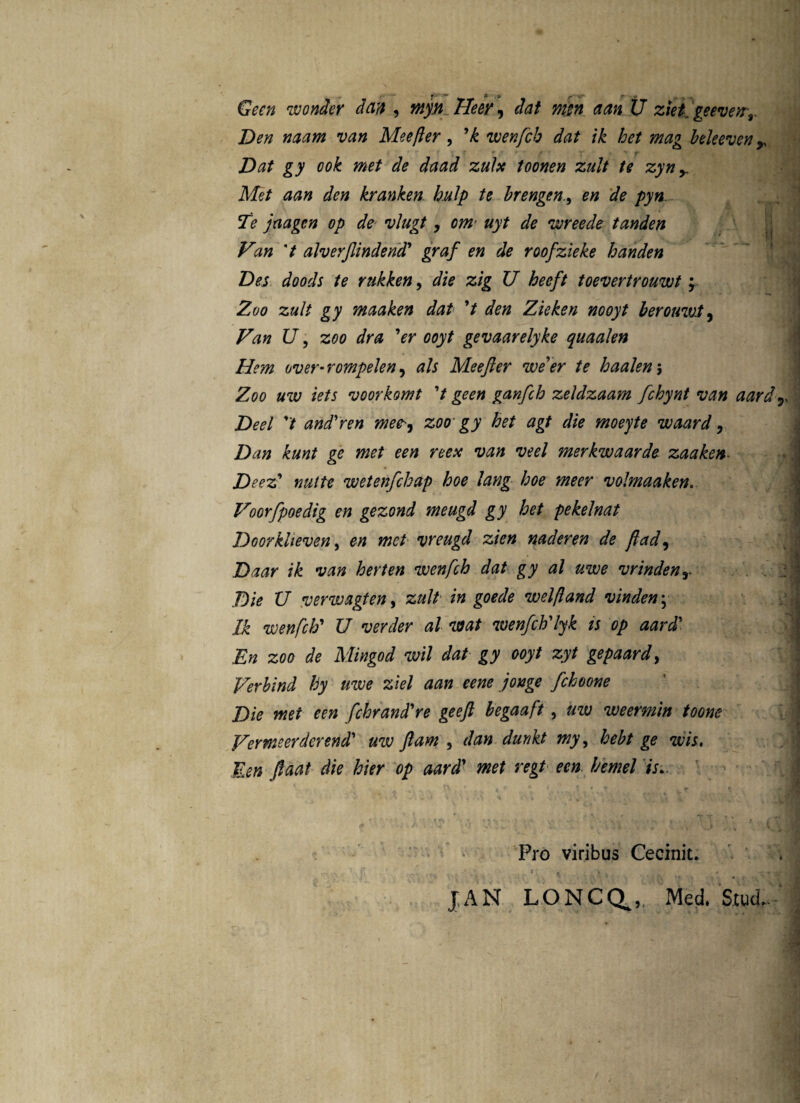 Geen wonder dan , mÿn Heer, dat men aan U ziet geeven,
Den naam van Meeſter , 'k wenſch dat ik het mag beleeven,
Dat gy ook met de daad zulx toonen zult te zyn,
Met aan den kranken hulp te brengen, en de pyn
Te jaagen op de vlugt , om uyt de wreede tanden
Van 't alverſlindend' graf en de roofzieke handen
Des doods te rukken, die zig U heeft toevertrouwt ;
Zoo zult gy maaken dat 't den Zieken nooyt berouwt,
Van U, zoo dra 'er ooyt gevaarelyke quaalen
Hem over-rompelen, als Meeſter we'er te haalen;
Zoo uw iets voorkomt 't geen ganſch zeldzaam ſchynt van aard,
Deel 't and'ren mee, zoo gy het agt die moeyte waard ,
Dan kunt ge met een reex van veel merkwaarde zaaken
Deez' nutte wetenſchap hoe lang hoe meer volmaaken.
Voorſpoedig en gezond meugd gy het pekelnat
Doorklieven, en met vreugd zien naderen de ſtad,
Daar ik van herten wenſch dat gy al uwe vrinden,
Die U verwagten, zult in goede welſtand vinden;
Ik wenſch' U verder al wat wenſch'lyk is op aard'
En zoo de Mingod wil dat gy ooyt zyt gepaard,
Verbind hy uwe ziel aan eene jonge ſchoone
Die met een ſchrand're geeſt begaaft , uw weermin toone
Vermeerderend' uw ſtam , dan dunkt my, hebt ge wis.
Een ſtaat die hier op aard' met regt een hemel is.
Pro viribus Cecinit.
JAN LONCQ, Med. Stud.